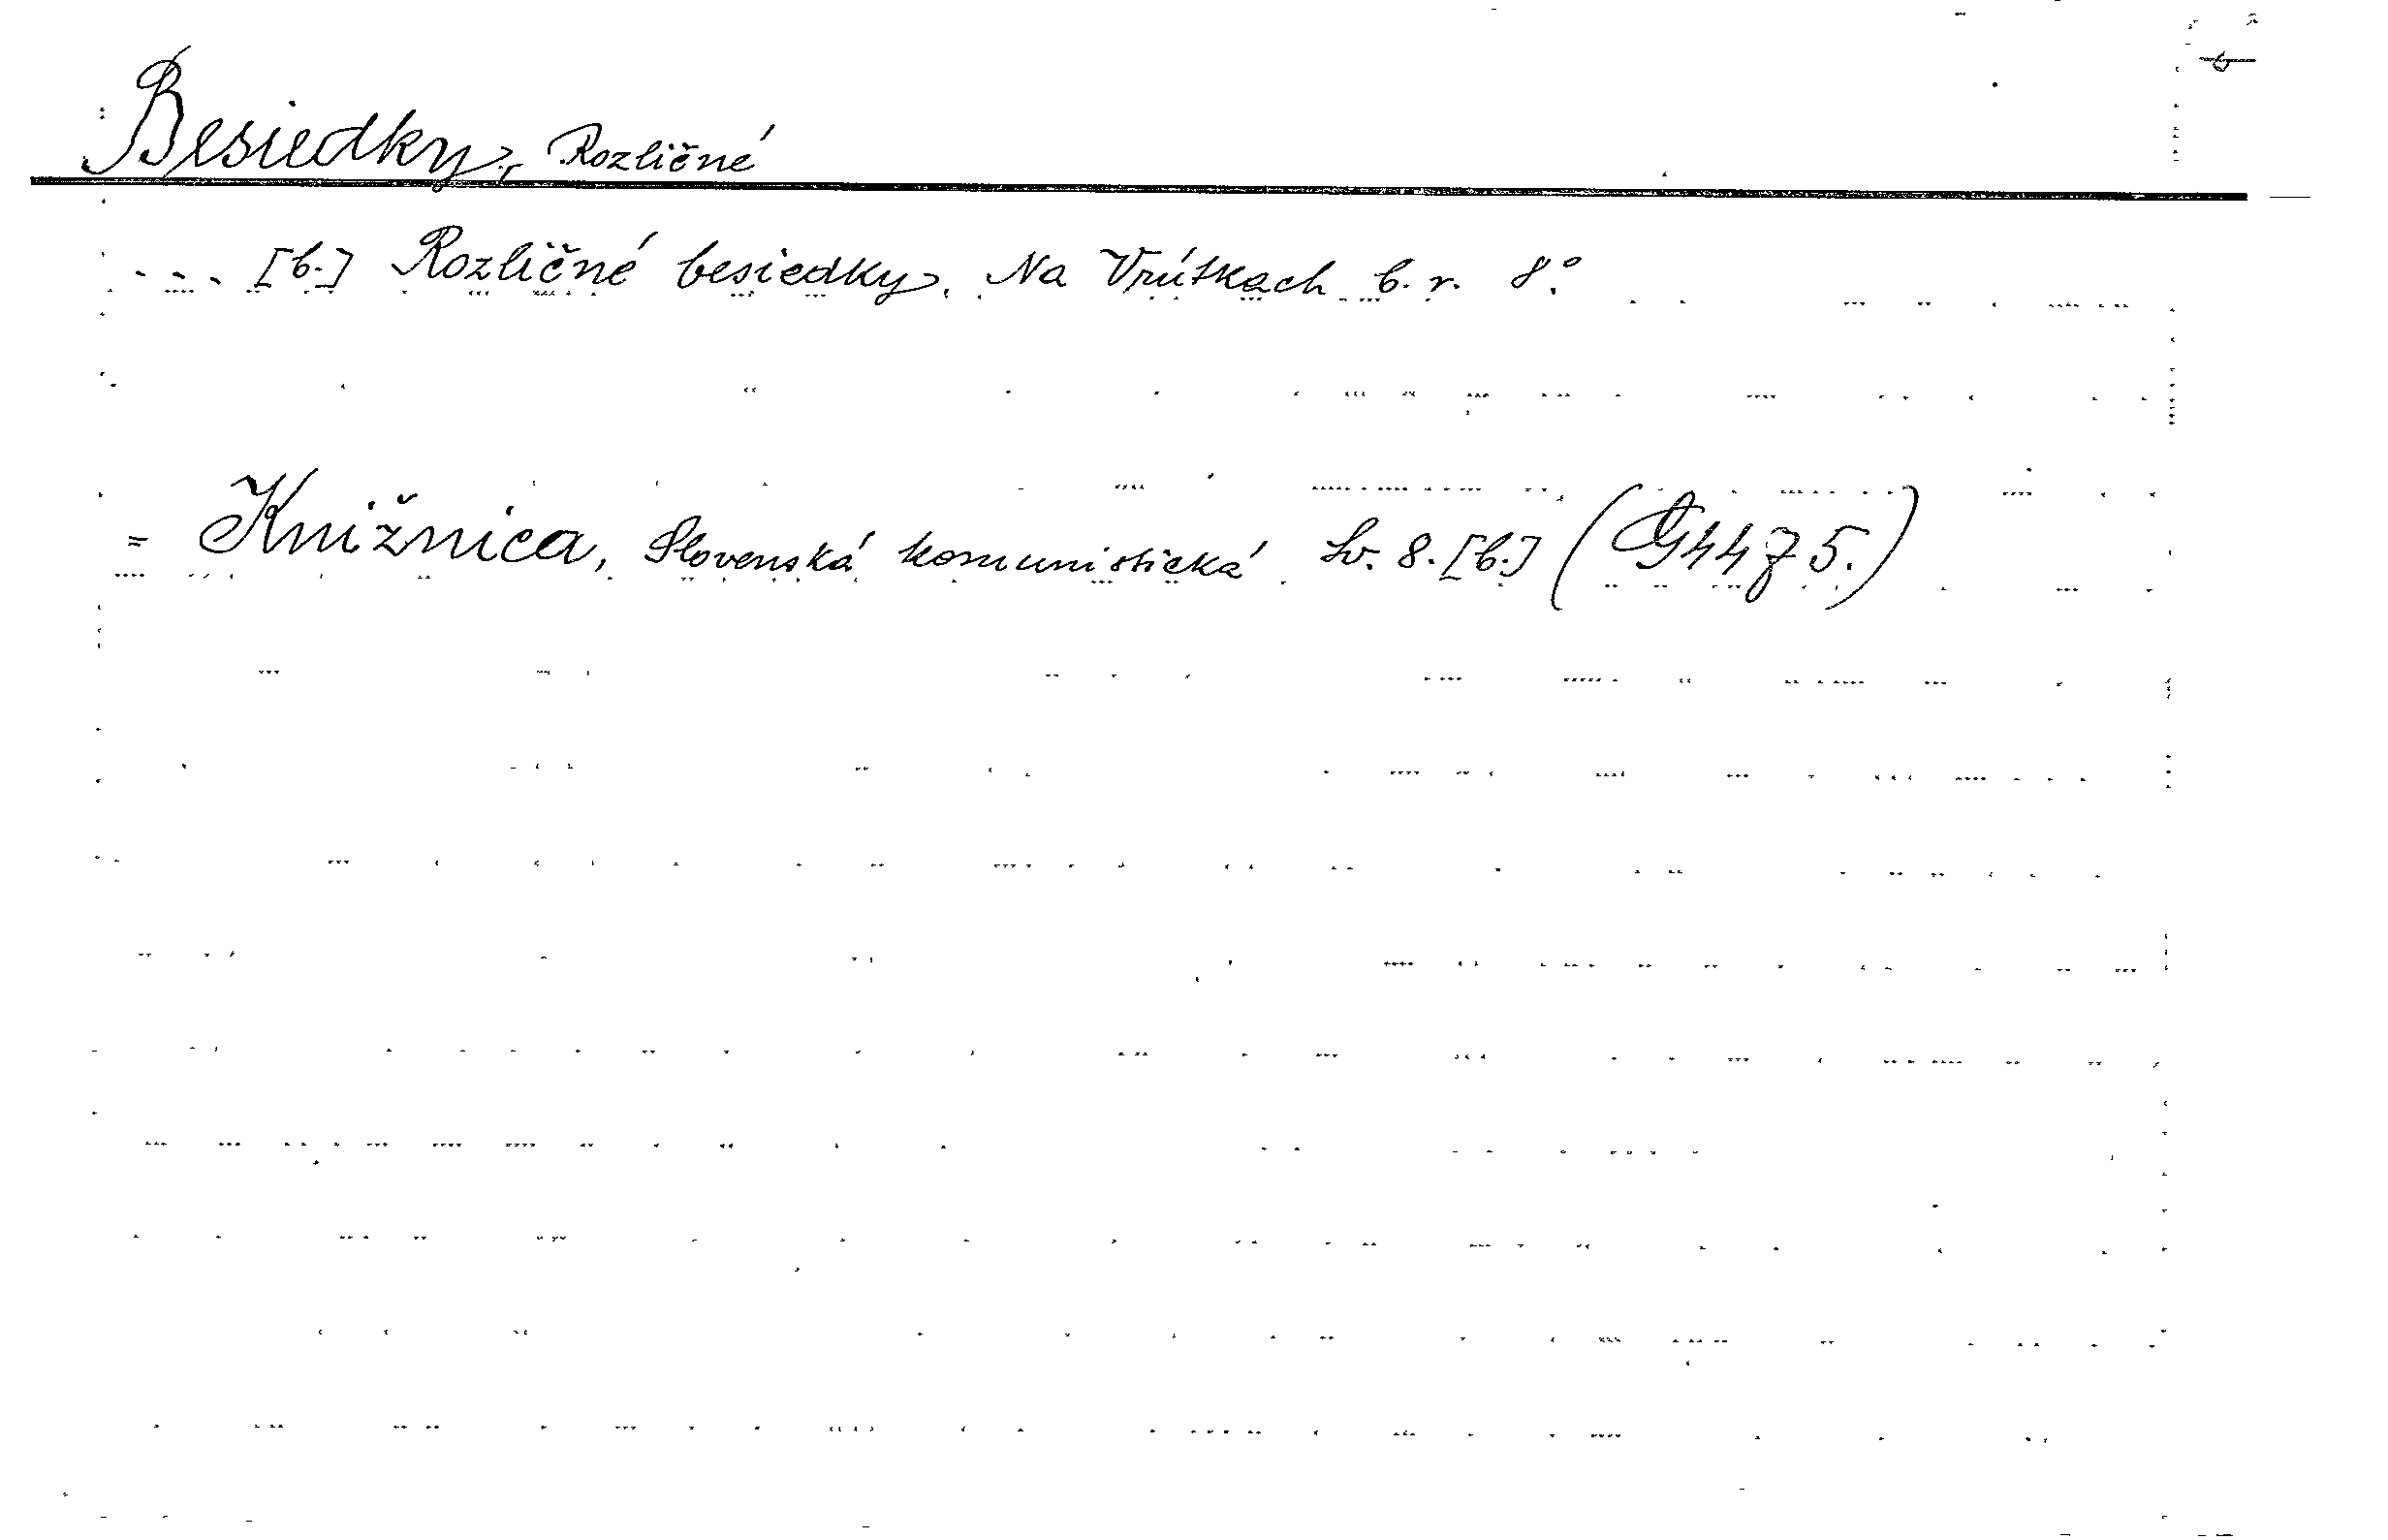 Besiedky, Rozličné
- - - [b.] Rozličné besiedky. Na Vrútkach b. r. 8°.
= Knižnica, Slovenská komunistická Sv. 8. [b.] (G 4475.)